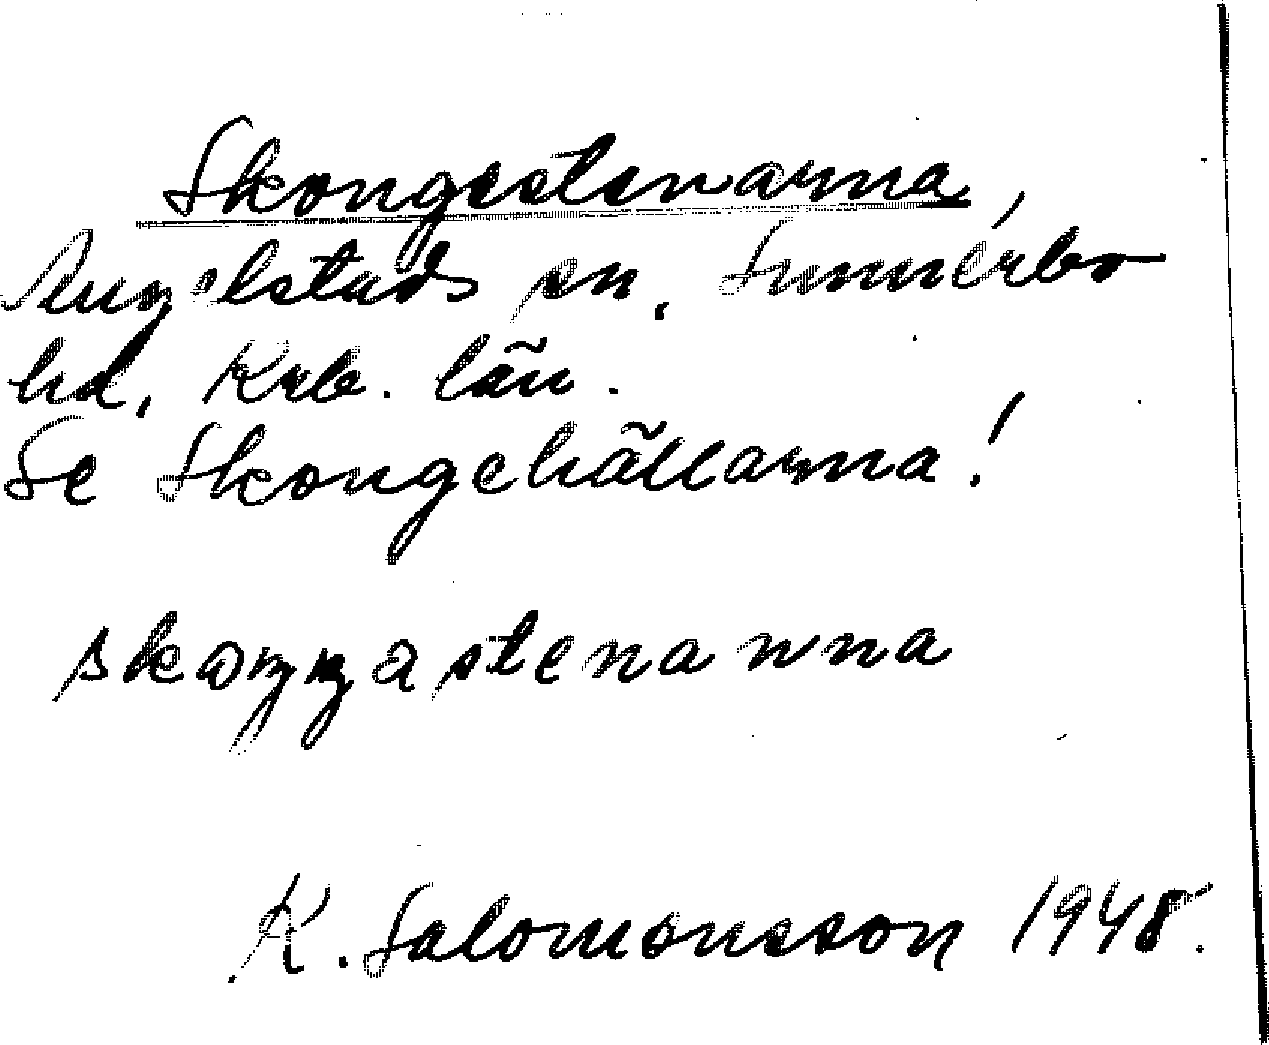 Skongestenarna,
Angelstads sn. Sunnerbo
hd, Krb. län.
Se Skongehällarna!
skaŋŋastenanna
K. Salomonsson 1948.